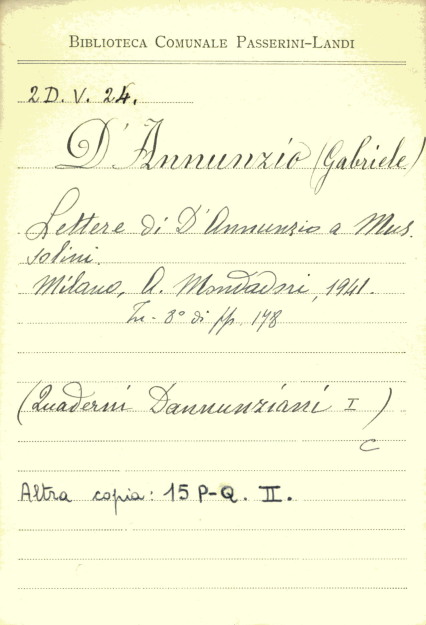 BIBLIOTECA COMUNALE PASSERINI-LANDI
2 D. V. 24.
D'Annunzio (Gabriele)
Lettere di D'Annunzio a Mus-
solini.
Milano, A. Mondadori, 1941.
In - 8° di pp. 178
(Quaderni Dannunziani I )
C
Altra copia: 15 P-Q. II.